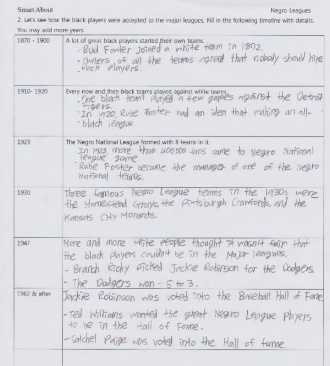 Smart About
Negro Leagues
2. Let's see how the black players were accepted to the major leagues. Fill in the following timeline with details.
You may add more years.
1870 - 1900
A lot of great black players started their own teams.
- Bud Fowler joined a white team in 1872.
- Owners of all the teams agreed that nobody should hire
black players.
1910- 1920
Every now and then black teams played against white teams.
- One black team played a few games against the Detroit
Tigers.
- In 1920, Rube Foster had an idea that making an all-
black league
1923
The Negro National League formed with 8 teams in it.
- In 1923, more than 400,000 fans came to Negro National
league game
- Rube Foster became the manager of one of the negro
national teams.
1930
Three famous Negro League teams in the 1930s were
the Homestead Grays, the Pittsburgh Crawfords, and the
Kansas City Monards.
1947
More and more white people thought it wasn't fair that
the black players couldn't be in the Major leagues.
- Branch Ricky picked Jackie Robinson for the Dodgers
- The Dodgers won - 5 to 3.
1962 & after
Jackie Robinson was voted into the Baseball Hall of Fame
- Ted Williams wanted the great Negro League Players
to be in the Hall of Fame.
- Satchel Paige was voted into the Hall of fame.